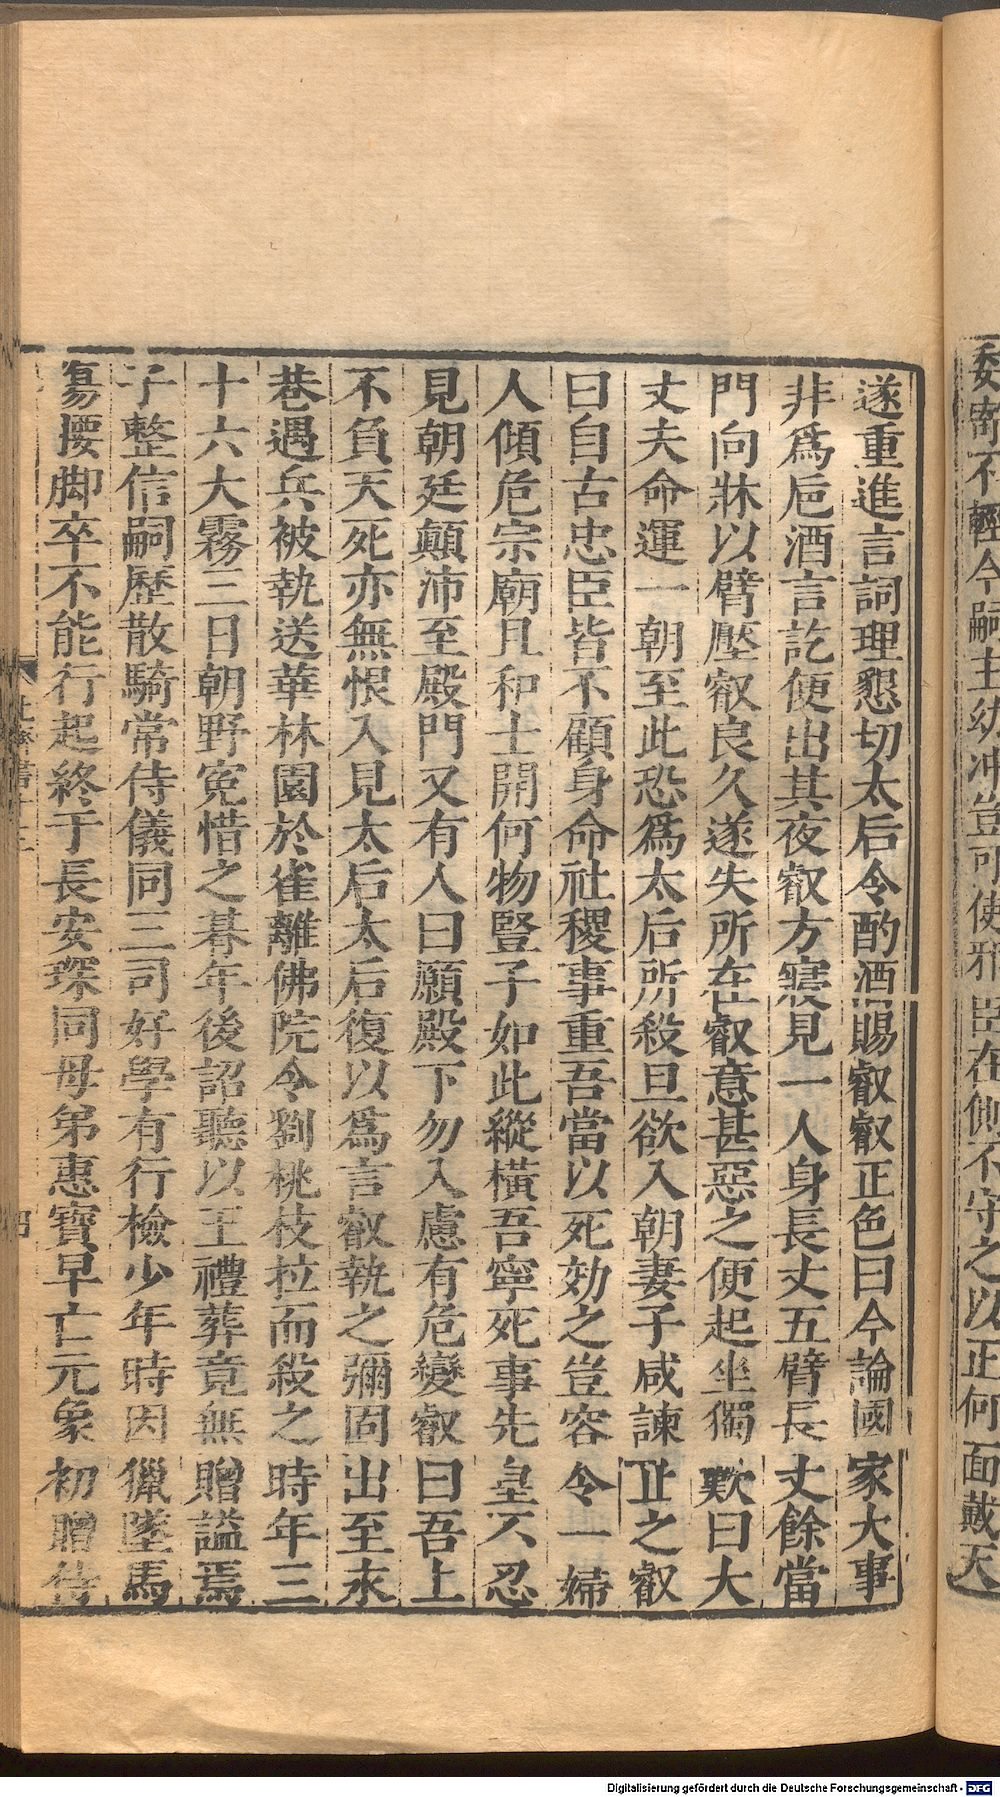 委寄不輕今嗣主幼沖豈可使邪臣在側不守之以正何面戴天
遂重進言詞理懇切太后令酌酒賜叡叡正色曰今論國家大事
非爲卮酒言訖便出其夜叡方寢見一人身長丈五臂長丈餘當
門向牀以臂壓叡良久遂失所在叡意甚惡之便起坐獨歎曰大
丈夫命運一朝至此恐爲太后所殺旦欲入朝妻子咸諫止之叡
曰自古忠臣皆不顧身命社稷事重吾當以死効之豈容令一婦
人傾危宗廟且和士開何物豎子如此縱橫吾寧死事先皇不忍
見朝廷顛沛至殿門又有人曰願殿下勿入慮有危變叡曰吾上
不負天死亦無恨入見太后太后復以爲言叡執之彌固出至永
巷遇兵被執送華林園於雀離佛院令劉桃枝拉而殺之時年三
十六大霧三日朝野冤惜之朞年後詔聽以王禮葬竟無贈謚焉
子整信嗣歷散騎常侍儀同三司好學有行檢少年時因獵墜馬
傷腰脚卒不能行起終于長安琛同母弟惠寶早亡元象初贈侍
北齊書十三
四
Digitalisierung gefördert durch die Deutsche Forschungsgemeinschaft - DFG